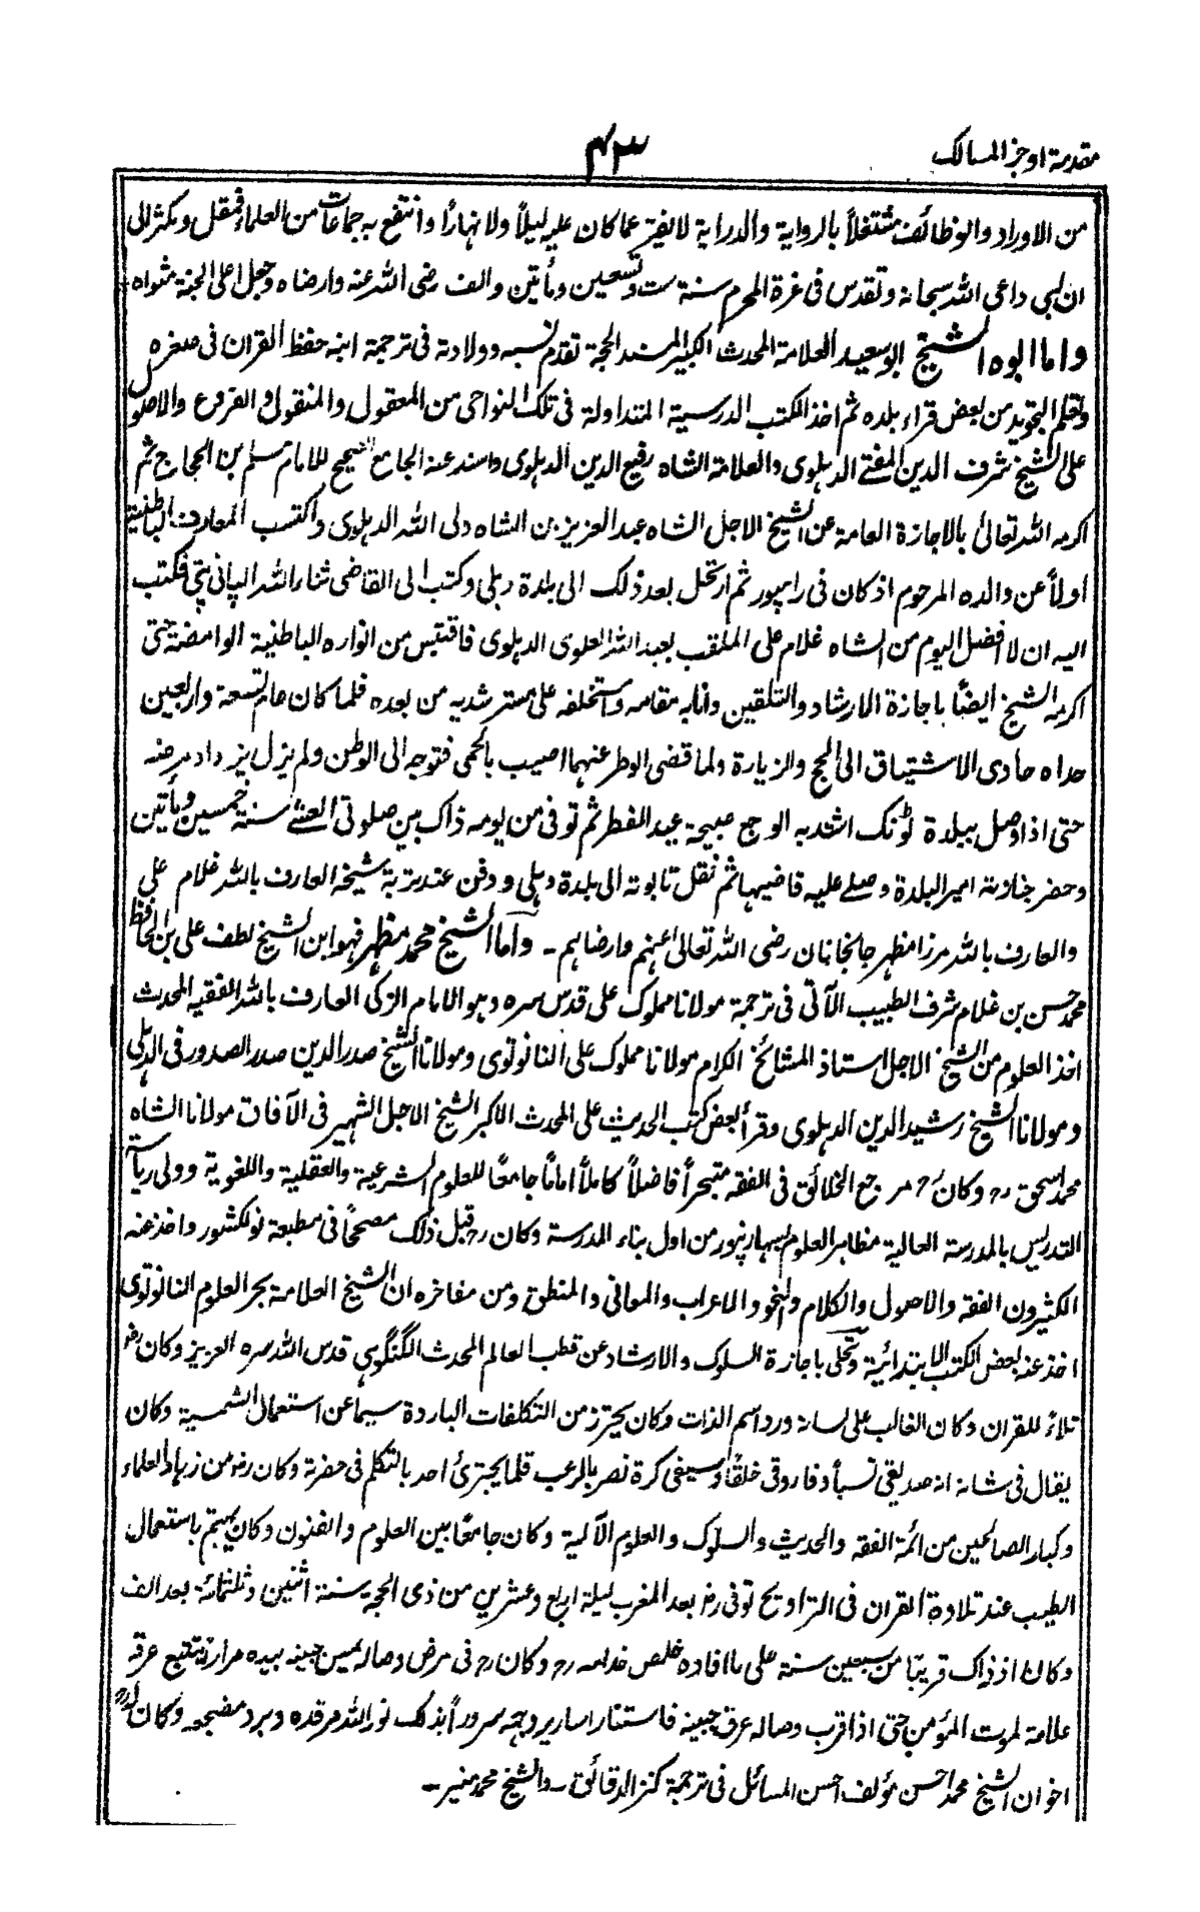 مقدمة اوجز المسالك
٤٣
من الاوراد والوظائف مشتغلاً بالرواية والدراية لا يفتر عما كان عليه ليلاً ولا نهاراً وانتفع به جماعات من العلماء فمقل ومكثر الى
ان لبى داعى الله سبحانه وتقدس فى غرة المحرم سنة ست وتسعين ومأتين والف رضى الله عنه وارضاه وجعل اعلى الجنة مثواه
واما ابوه الشيخ ابو سعيد العلامة المحدث الكبير المسند الحجة تقدم نسبه وولادته فى ترجمة ابنه حفظ القران فى صغره
وتعلم التجويد من بعض قراء بلده ثم اخذ الكتب الدرسية المتداولة فى تلك النواحى من المعقول والمنقول والفروع والاصول
على الشيخ شرف الدين المفتى الدهلوى والعلامة الشاه رفيع الدين الدهلوى واسند عنه الجامع الصحيح للامام مسلم بن الحجاج ثم
اكرمه الله تعالى بالاجازة العامة عن الشيخ الاجل الشاه عبد العزيز بن الشاه ولى الله الدهلوى واكتسب المعارف الباطنية
اولاً عن والده المرحوم اذ كان فى رامپور ثم ارتحل بعد ذلك الى بلدة دهلى وكتب الى القاضى ثناء الله الپانى پتى فكتب
اليه ان لا افضل اليوم من الشاه غلام على الملقب بعبد الله العلوى الدهلوى فاقتبس من انواره الباطنية الوامضة حتى
اكرمه الشيخ ايضاً باجازة الارشاد والتلقين وانابه مقامه واستخلفه على مسترشديه من بعده فلما كان عام تسعة واربعين
حداه حادى الاشتياق الى الحج والزيارة ولما قضى الوطر عنهما اصيب بالحمى فتوجه الى الوطن ولم يزل يزداد مرضه
حتى اذا وصل ببلدة ٹونك اشتد به الوجع صبيحة عيد الفطر ثم توفى من يومه ذاك بين صلوتى العشى سنة خمسين ومأتين
وحضر جنازته امير البلدة وصلى عليه قاضيها ثم نقل تابوته الى بلدة دهلى ودفن عند تربة شيخه العارف بالله غلام على
والعارف بالله مرزا مظهر جانجانان رضى الله تعالى عنهم وارضاهم ۔ واما الشيخ محمد مظهر فهو ابن الشيخ لطف على بن الحافظ
محمد حسن بن غلام شرف الطبيب الآتى فى ترجمة مولانا مملوك على قدس سره وهو الامام الزكى العارف بالله الفقيه المحدث
اخذ العلوم من الشيخ الاجل استاذ المشائخ الكرام مولانا مملوك على النانوتوى ومولانا الشيخ صدر الدين صدر الصدور فى الدهلى
ومولانا الشيخ رشيد الدين الدهلوى وقرأ بعض كتب الحديث على المحدث الاكبر الشيخ الاجل الشهير فى الآفاق مولانا الشاه
محمد اسحق رح وكان رح مرجع الخلائق فى الفقه متبحراً فاضلاً كاملاً اماماً جامعاً للعلوم الشرعية والعقلية واللغوية وولى رياسة
التدريس بالمدرسة العالية مظاهر العلوم لسهارنپور من اول بناء المدرسة وكان رح قبل ذلك مصححاً فى مطبعة نولكشور واخذ عنه
الكثيرون الفقه والاصول والكلام والنحو والاعراب والمعانى والمنطق ومن مفاخره ان الشيخ العلامة بحر العلوم النانوتوى
اخذ عنه بعض الكتب الابتدائية وتحلى باجازة السلوك والارشاد عن قطب العالم المحدث الگنگوهى قدس الله سره العزيز وكان رض
تلاءً للقران وكان الغالب على لسانه ورد اسم الذات وكان يحترز من التكلفات الباردة سيما عن استعمال الشمسية وكان
يقال فى شانه انه صديقى نسباً وفاروقى خلقاً وسيفى كرة نصر بالرعب قلما يجترئ احد بالتكلم فى حضرته وكان رض من زهاد العلماء
وكبار الصالحين من ائمة الفقه والحديث والسلوك والعلوم الآلية وكان جامعاً بين العلوم والفنون وكان يهتم باستعمال
الطيب عند تلاوة القران فى التراويح توفى رض بعد المغرب ليلة اربع وعشرين من ذى الحجة سنة اثنين وثلثمائة بعد الف
وكان اذ ذاك قريباً من سبعين سنة على ما افاده خلص خدامه رح وكان رح فى مرض وصاله يمس جبينه بيده مراراً يتتبع عرقه
علامة لموت المؤمن حتى اذا قرب وصاله عرق جبينه فاستنار اسارير وجهه سروراً بذلك نور الله مرقده وبرد مضجعه وكان له
اخوان الشيخ محمد احسن مؤلف احسن المسائل فى ترجمة كنز الدقائق ۔ والشيخ محمد منير ۔